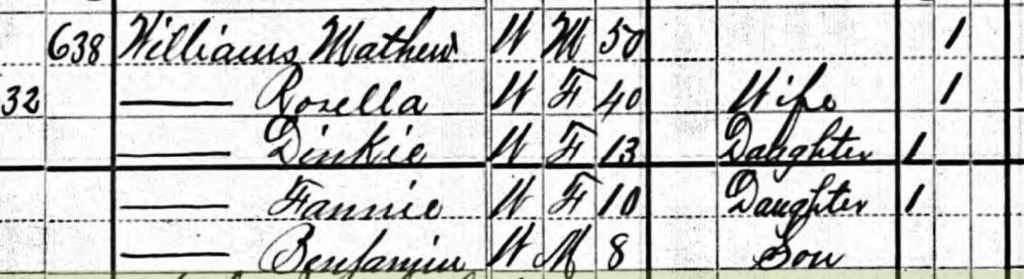 638 Williams Mathew W M 50 1
32 — Rosella W F 40 Wife 1
— Dinkie W F 13 Daughter 1
— Fannie W F 10 Daughter 1
— Benjamin W M 8 Son